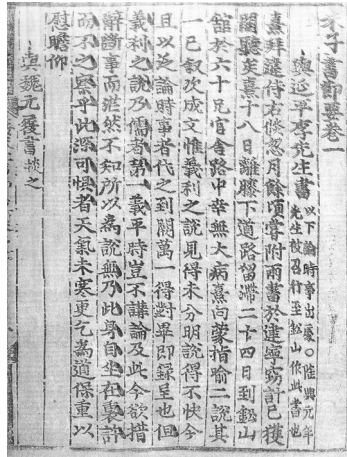 朱子書節要卷一
與延平李先生書 以下論時事出處○隆興元年
先生被召行至鈆山作此書也
熹拜違侍右倏忽月餘頃嘗附兩書於建寧竊計已獲
關聽矣熹十八日離膝下道路留滯二十四日到鈆山
舘於六十兄官舍路中幸無大病熹向蒙指喻二說其
一已叙次成文惟義利之說見得未分明說得不快今
且以泛論時事者代之到闕萬一得對畢即錄呈也但
義利之說乃儒者第一義平時豈不講論及此今欲措
辭斷事而茫然不知所以為說無乃此身自坐在裏許
而不之察乎此深可懼者天氣未寒更乞為道保重以
慰瞻仰
與魏元履書 掞之